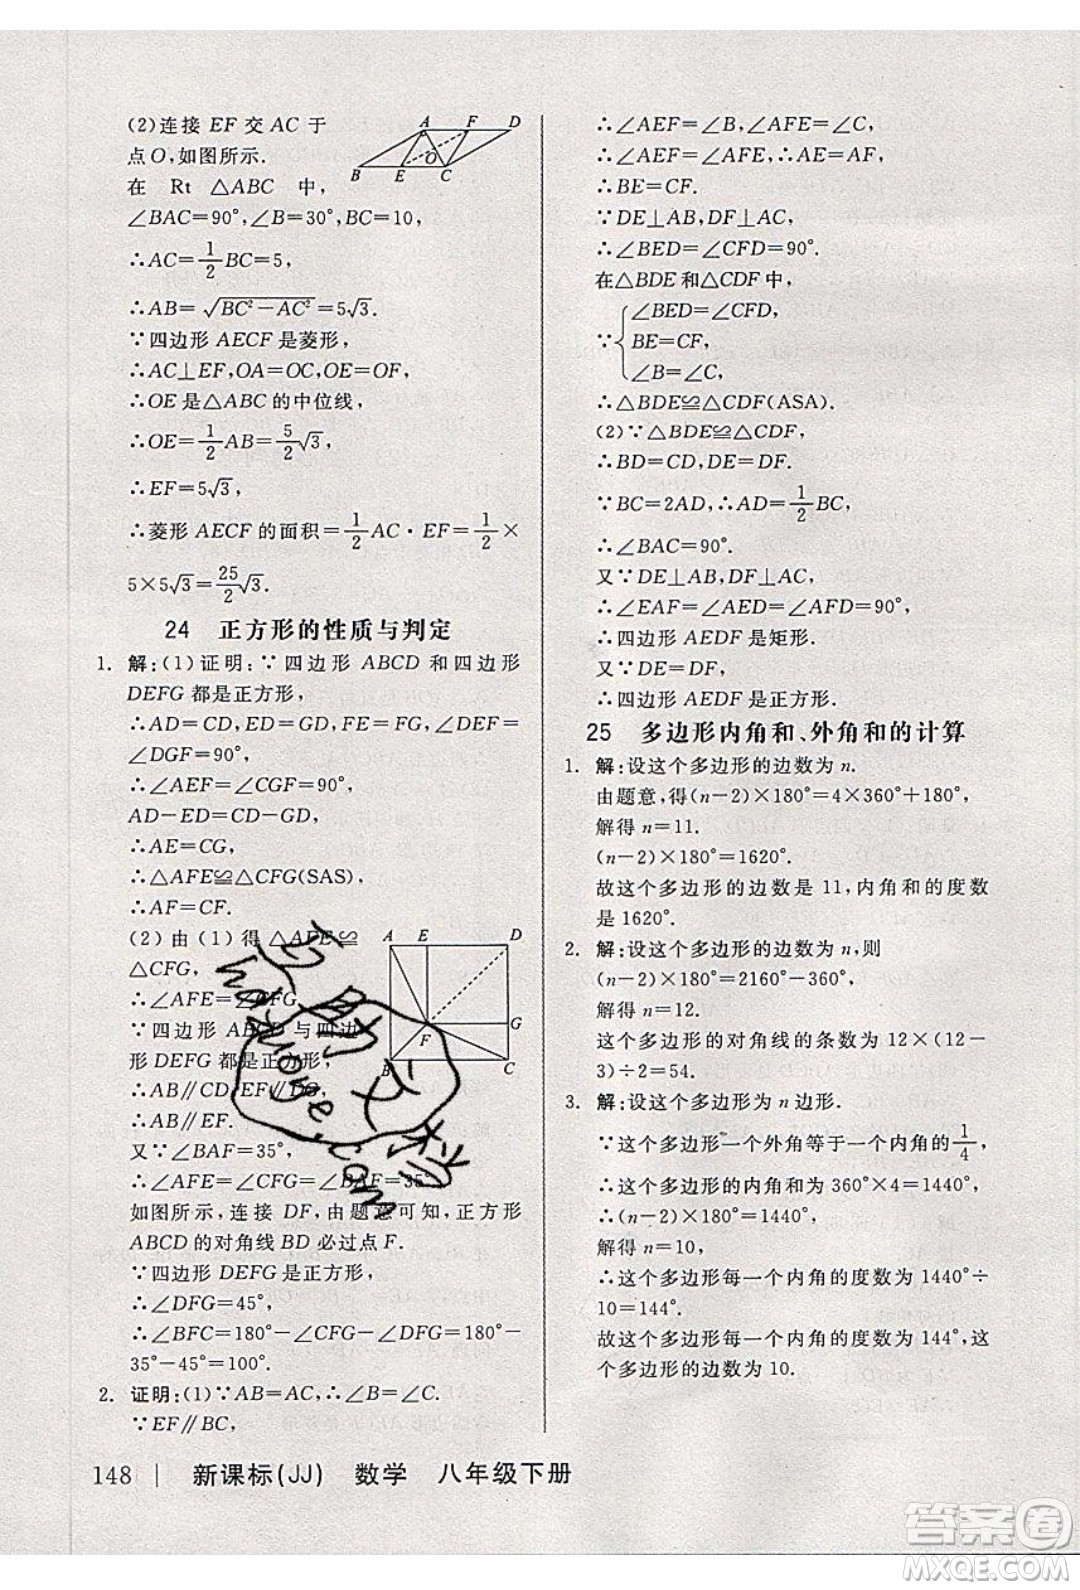 (2)连接 EF 交 AC 于
点O,如图所示.
在 Rt △ABC 中,
∠BAC=90°,∠B=30°,BC=10,
∴AC=1/2BC=5,
∴AB=√(BC²-AC²)=5√3.
∵四边形 AECF 是菱形,
∴AC⊥EF,OA=OC,OE=OF,
∴OE 是△ABC 的中位线,
∴OE=1/2AB=5/2√3,
∴EF=5√3,
∴菱形 AECF 的面积=1/2AC·EF=1/2×
5×5√3=25/2√3.
A F D
O
B E C
24 正方形的性质与判定
1. 解:(1)证明:∵四边形 ABCD 和四边形
DEFG 都是正方形,
∴AD=CD,ED=GD,FE=FG,∠DEF=
∠DGF=90°,
∴∠AEF=∠CGF=90°,
AD-ED=CD-GD,
∴AE=CG,
∴△AFE≌△CFG(SAS),
∴AF=CF.
(2) 由 (1) 得 △AFE ≌
△CFG,
∴∠AFE=∠CFG.
∵四边形 ABCD 与四边
形 DEFG 都是正方形,
∴AB∥CD,EF∥DG,
∴AB∥EF.
又∵∠BAF=35°,
∴∠AFE=∠CFG=∠BAF=35°.
如图所示,连接 DF,由题意可知,正方形
ABCD 的对角线 BD 必过点 F.
∵四边形 DEFG 是正方形,
∴∠DFG=45°,
∴∠BFC=180°-∠CFG-∠DFG=180°-
35°-45°=100°.
A E D
G
F
B C
2. 证明:(1)∵AB=AC,∴∠B=∠C.
∵EF∥BC,
∴∠AEF=∠B,∠AFE=∠C,
∴∠AEF=∠AFE,∴AE=AF,
∴BE=CF.
∵DE⊥AB,DF⊥AC,
∴∠BED=∠CFD=90°.
在△BDE 和△CDF 中,
∠BED=∠CFD,
∵ BE=CF,
∠B=∠C,
∴△BDE≌△CDF(ASA).
(2)∵△BDE≌△CDF,
∴BD=CD,DE=DF.
∵BC=2AD,∴AD=1/2BC,
∴∠BAC=90°.
又∵DE⊥AB,DF⊥AC,
∴∠EAF=∠AED=∠AFD=90°,
∴四边形 AEDF 是矩形.
又∵DE=DF,
∴四边形 AEDF 是正方形.
25 多边形内角和、外角和的计算
1. 解:设这个多边形的边数为 n.
由题意,得(n-2)×180°=4×360°+180°,
解得 n=11.
(n-2)×180°=1620°.
故这个多边形的边数是 11,内角和的度数
是 1620°.
2. 解:设这个多边形的边数为 n,则
(n-2)×180°=2160°-360°,
解得 n=12.
这个多边形的对角线的条数为 12×(12-
3)÷2=54.
3. 解:设这个多边形为 n 边形.
∵这个多边形一个外角等于一个内角的1/4,
∴这个多边形的内角和为 360°×4=1440°,
∴(n-2)×180°=1440°,
解得 n=10,
∴这个多边形每一个内角的度数为 1440°÷
10=144°.
故这个多边形每一个内角的度数为 144°,这
个多边形的边数为 10.
148 | 新课标(JJ) 数学 八年级下册
答案圈
MXQE.COM